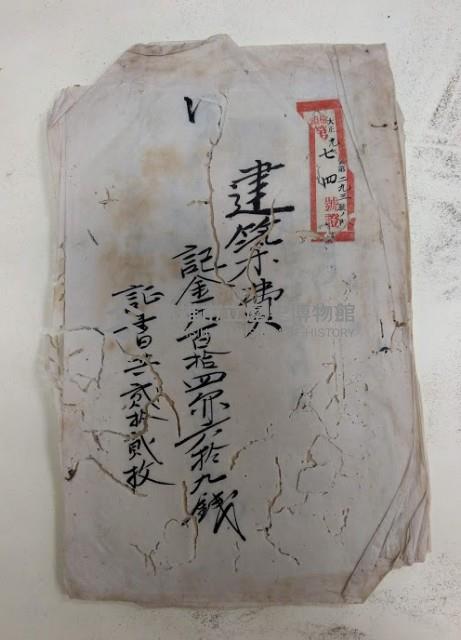 大正九
第七四號證
第二九三號ノ
建築費
記金八百拾四円六拾九錢
証書三弐拾弐枚
博物館
HISTORY